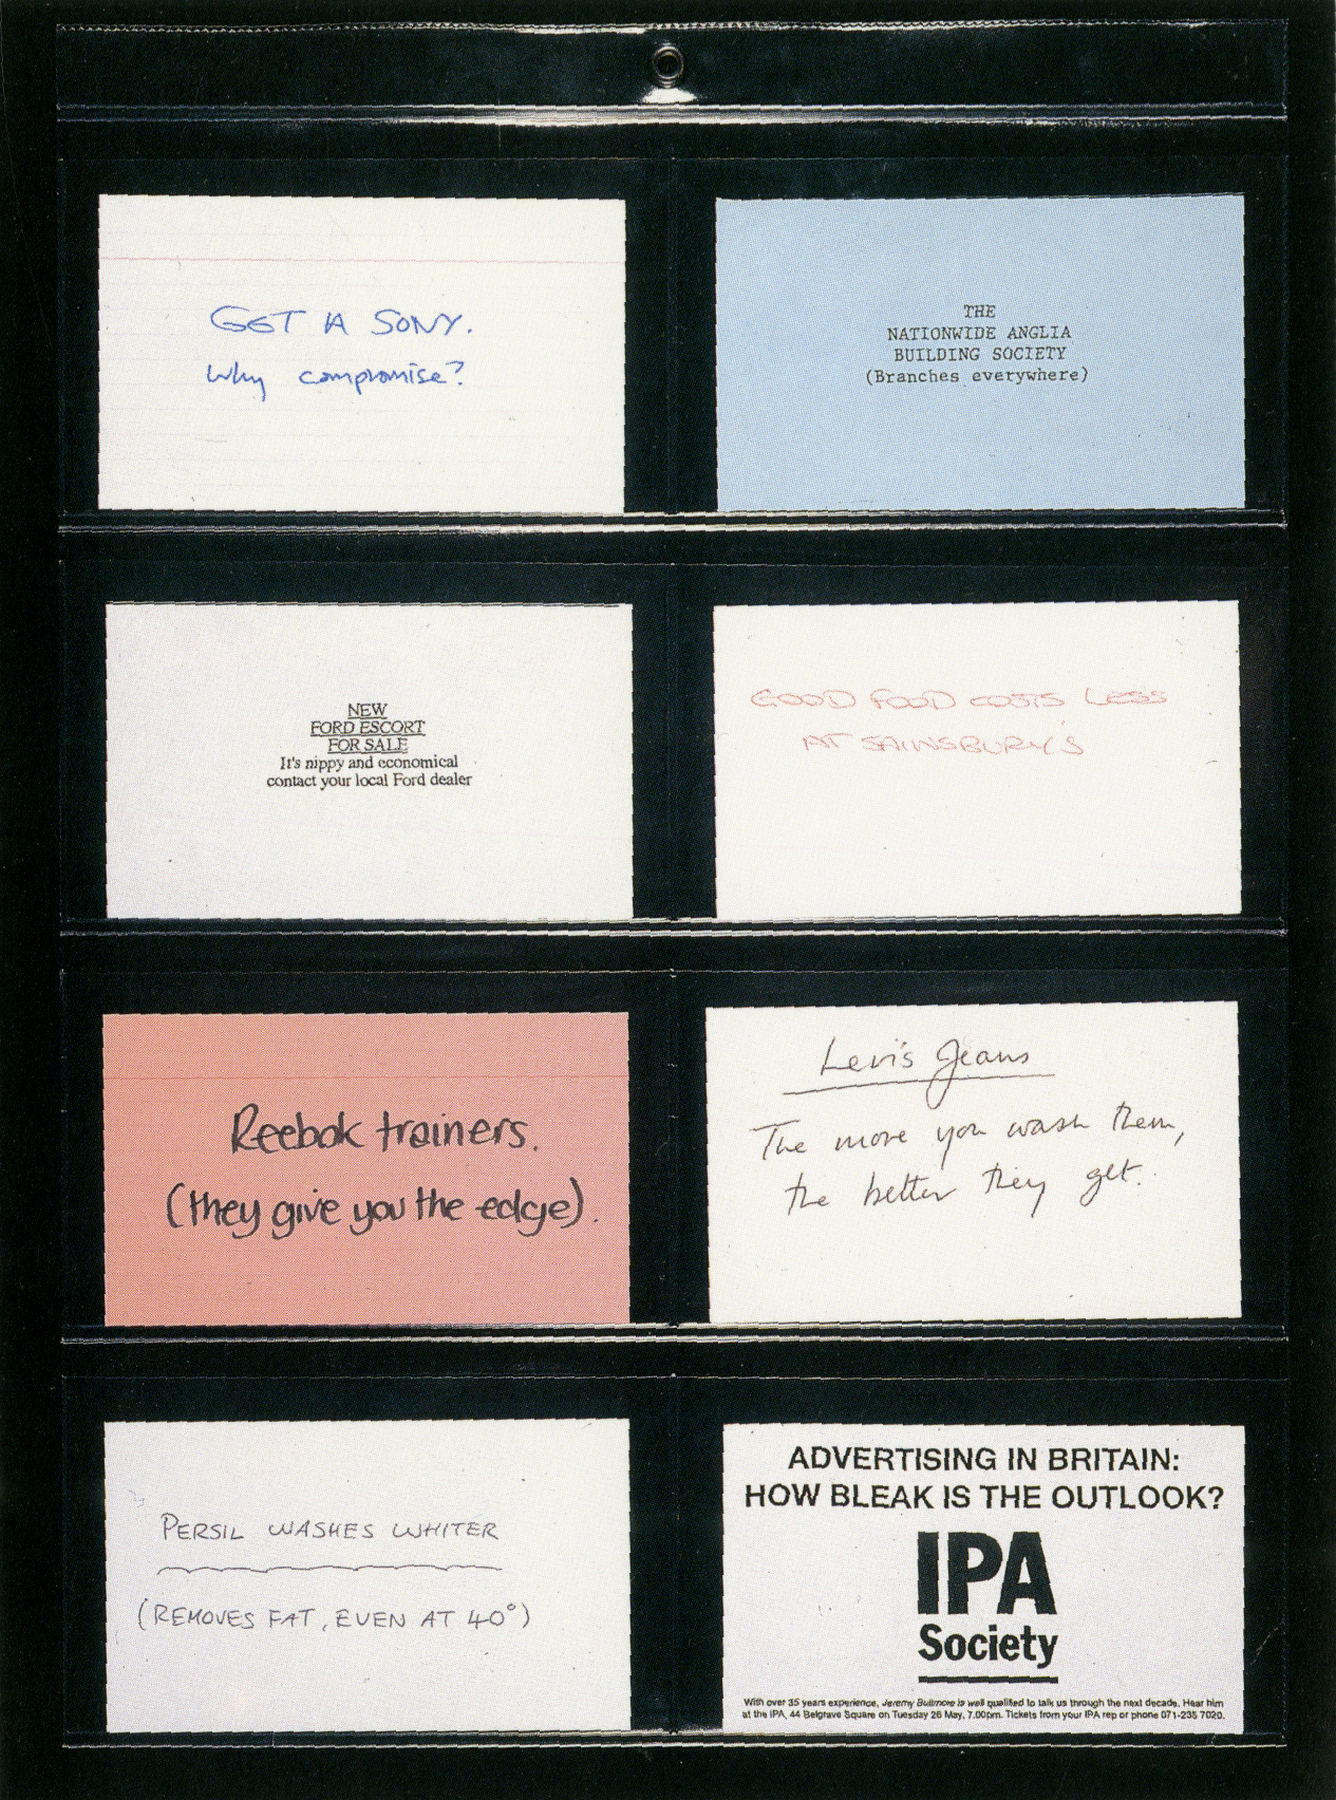 GET A SONY.
Why compromise?
THE
NATIONWIDE ANGLIA
BUILDING SOCIETY
(Branches everywhere)
NEW
FORD ESCORT
FOR SALE
It's nippy and economical
contact your local Ford dealer
GOOD FOOD COSTS LESS
AT SAINSBURY'S
Reebok trainers.
(they give you the edge).
Levi's Jeans
The more you wash them,
the better they get.
PERSIL WASHES WHITER
(REMOVES FAT, EVEN AT 40°)
ADVERTISING IN BRITAIN:
HOW BLEAK IS THE OUTLOOK?
IPA
Society
With over 35 years experience, Jeremy Bullmore is well qualified to talk us through the next decade. Hear him
at the IPA, 44 Belgrave Square on Tuesday 26 May, 7.00pm. Tickets from your IPA rep or phone 071-235 7020.